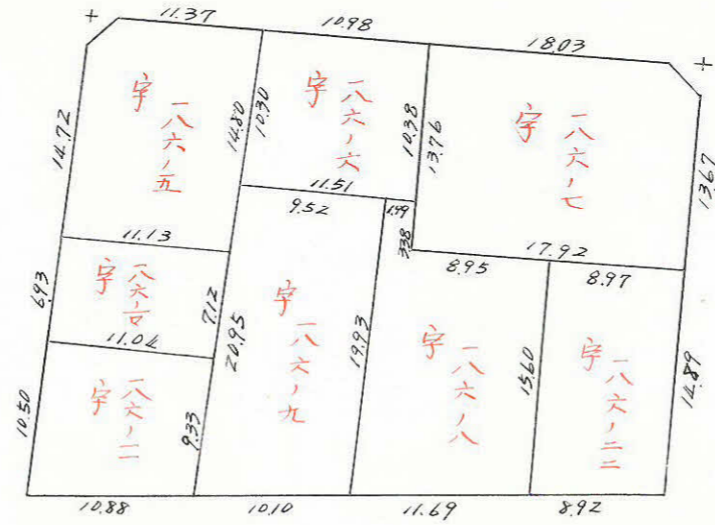 11.37
10.98
18.03
14.72
字 一八六ノ五
14.80
10.30
字 一八六ノ六
10.38
13.76
字 一八六ノ七
13.67
11.51
9.52
1.99
3.38
11.13
17.92
8.95
8.97
6.93
字 一八六ノ
7.12
20.95
字 一八六ノ九
19.93
字 一八六ノ八
15.60
字 一八六ノ二二
14.89
11.04
10.50
字 一八六ノ二一
9.33
10.88
10.10
11.69
8.92